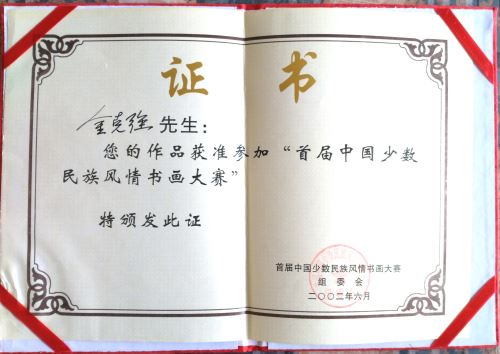 证书
金克强先生：
您的作品获准参加“首届中国少数
民族风情书画大赛”
特颁发此证
首届中国少数民族风情书画大赛
组委会
二〇〇二年六月